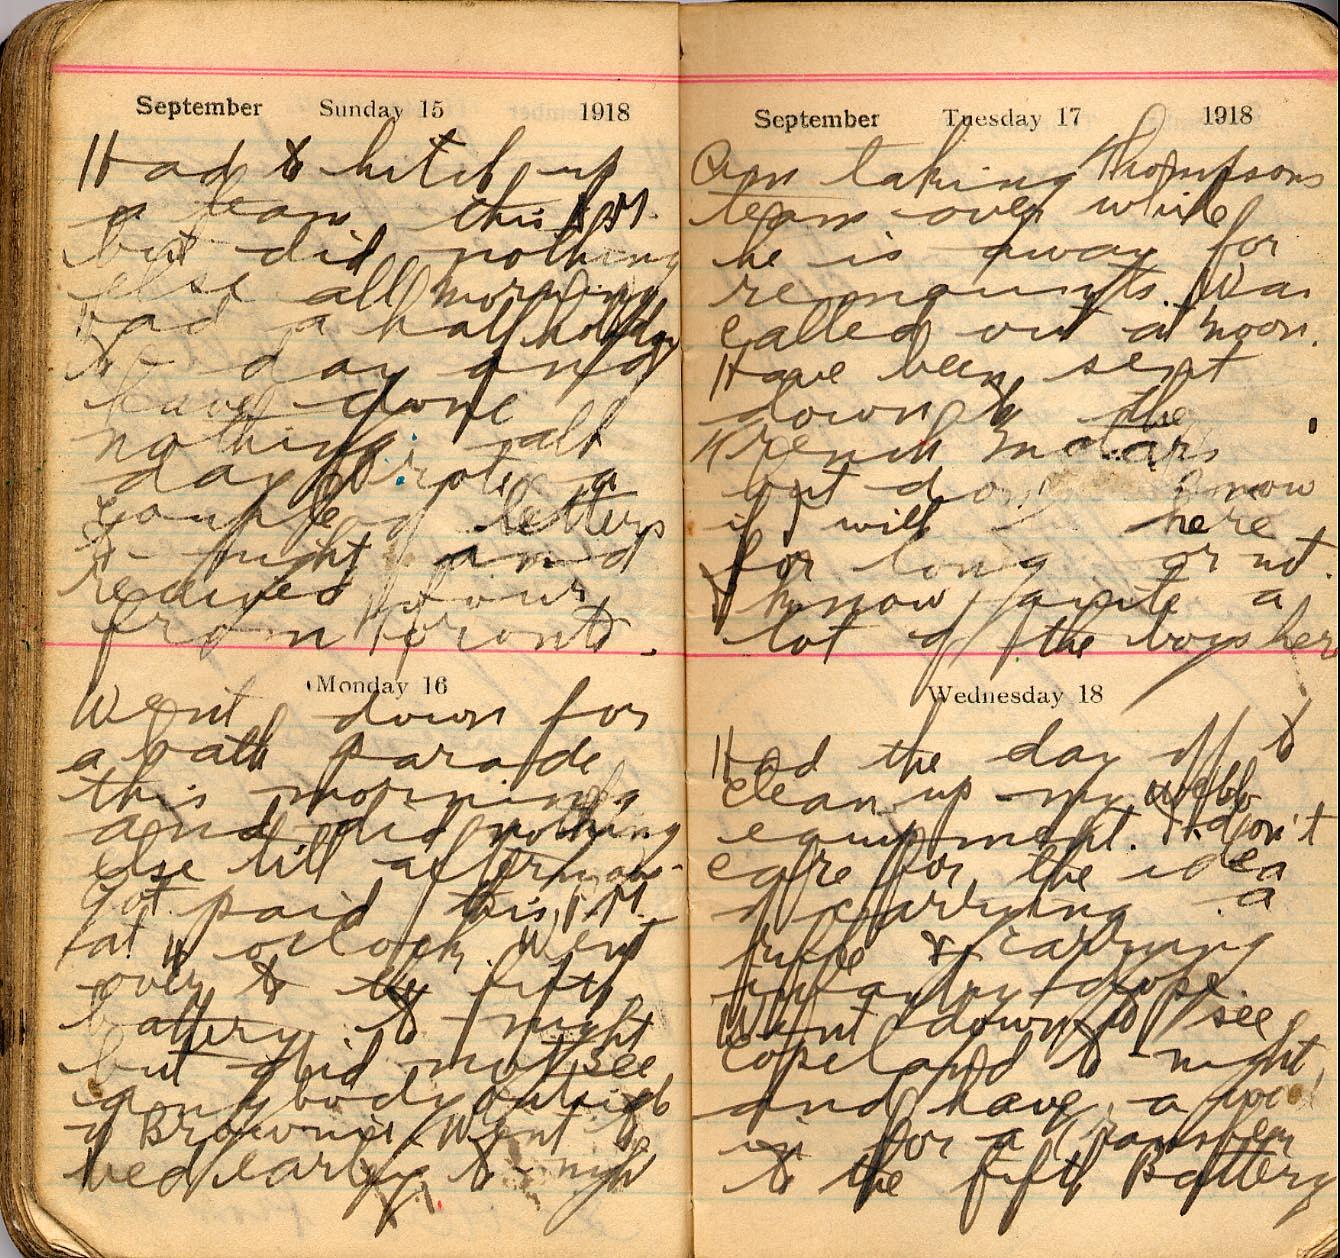 September Sunday 15 1918
Had to hitch up
a team this A.M.
but did nothing
else all morning
had a half holiday
to day and
have done
nothing all
day Wrote a
couple of letters
to-night and
received four
from Toronto.
Monday 16
Went down for
a bath parade
this morning
and did nothing
else till afternoon.
Got paid this P.M.
at 4 oclock. Went
over to the fifth
battery to-night
but did not see
anybody outside
of Brownie. Went to
bed early to-night
September Tuesday 17 1918
Am taking Thompsons
team over while
he is away for
remounts. Was
called out at noon.
Have been sent
down to the
Trench Motars
but don't know
if I will here
for long or not.
I know quite a
lot of the boys here
Wednesday 18
Had the day off to
clean up my webb
equipment. I don't
care for the idea
of carrying a
rifle & carrying
infantry dope.
Went down to see
Copeland to-night
and have a
in for a transfer
to the fifth Battery